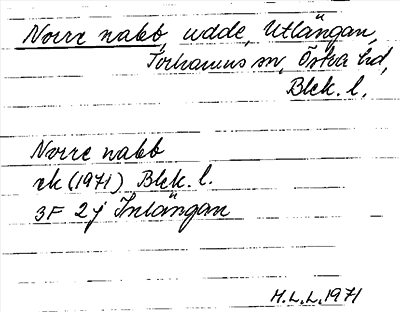 Norre nabb, udde, Utlängan,
Torhamns sn, Östra hd,
Blek. l.
Norre nabb
ek (1971) Blek. l.
3F 2j Inlängan
H.L.L. 1971